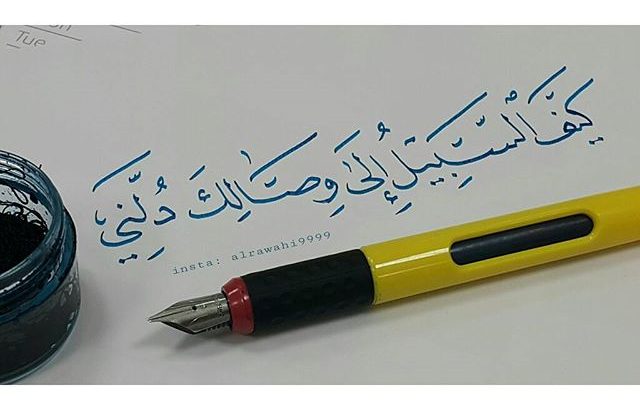 Tue
كيف السبيل إلى وصالك دلني
insta: alrawahi9999